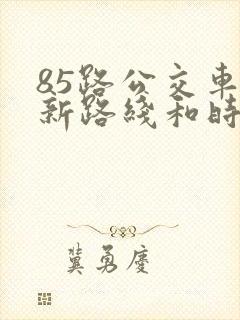 85路公交車
新路綫和時
冀勇慶